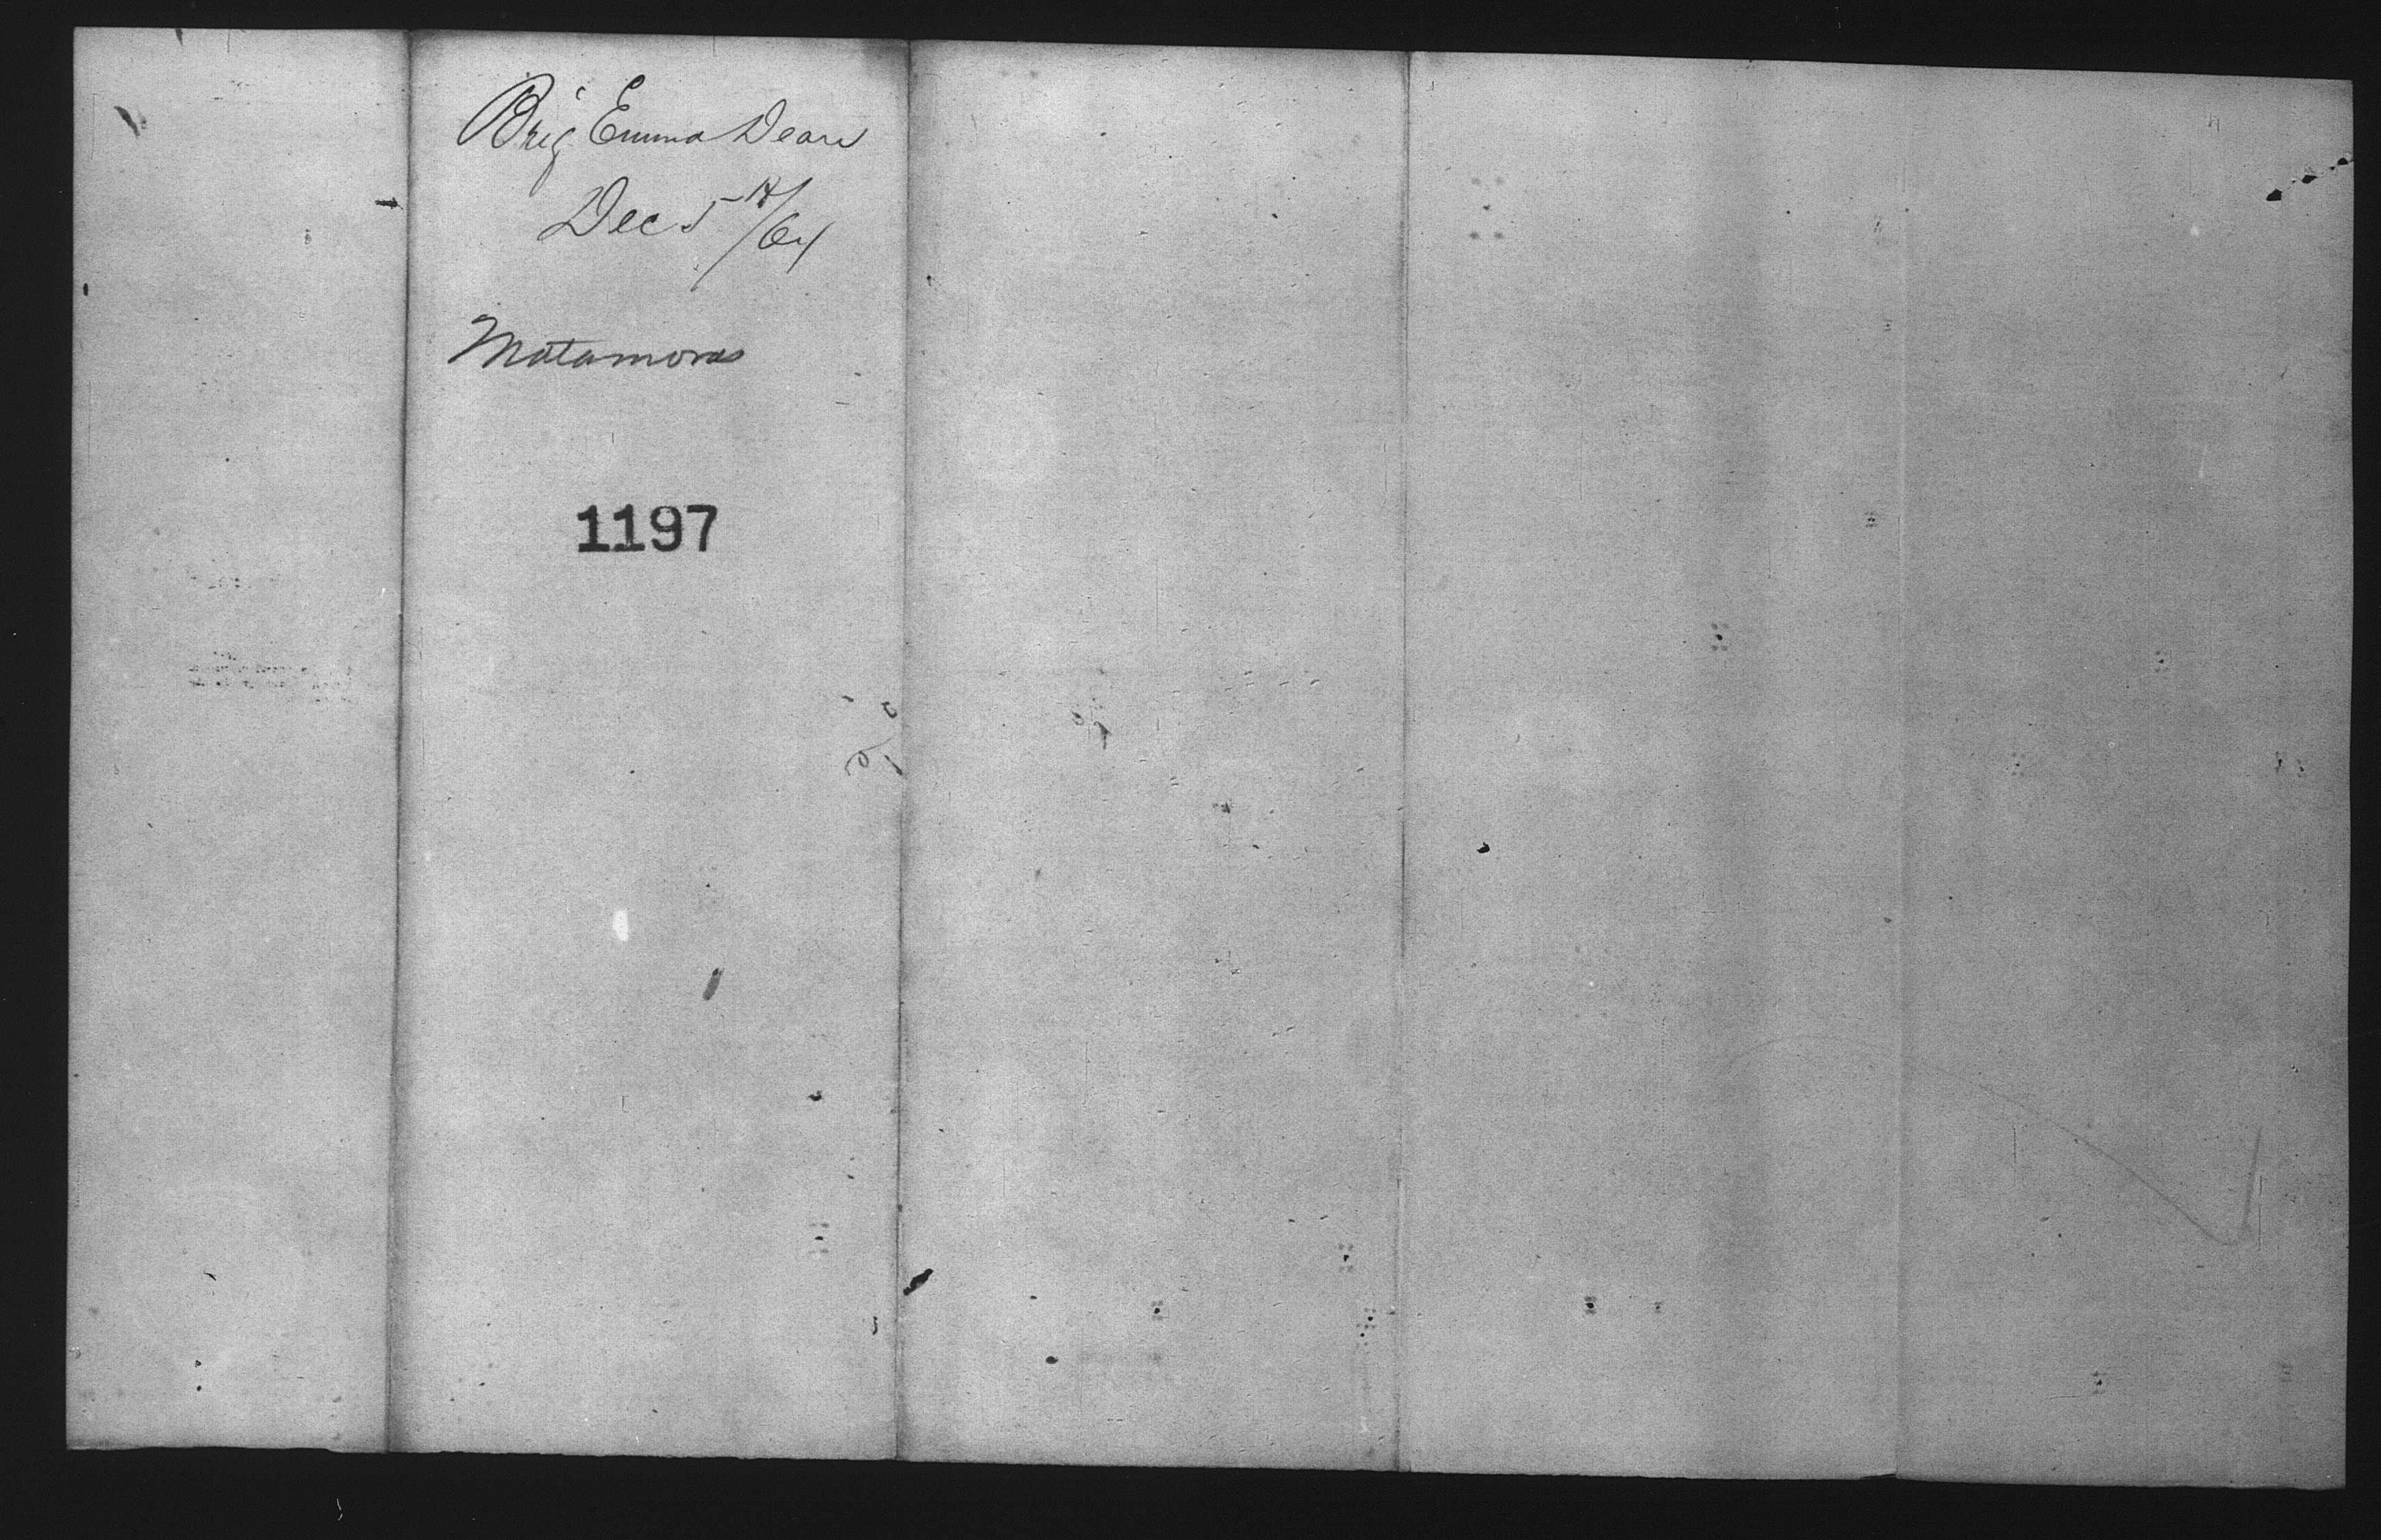 Brig Emma Dean
Dec 5th/64
Matamoras
1197